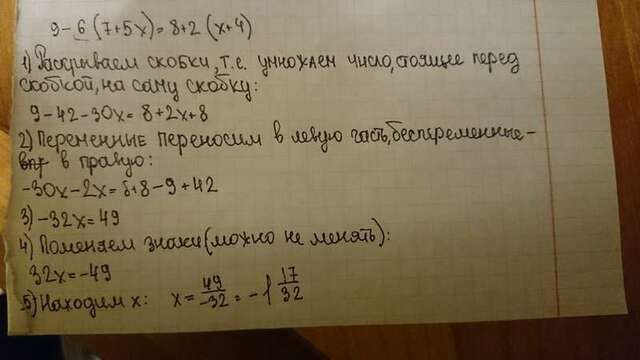 9-6(7+5x)=8+2(x+4)
1) Раскрываем скобки, т.е. умножаем число, стоящее перед
скобкой, на саму скобку:
9-42-30x=8+2x+8
2) Переменные переносим в левую часть, беспеременные-
в правую:
-30x-2x=8+8-9+42
3) -32x=49
4) Поменяем знаки (можно не менять):
32x=-49
5) Находим x: x=49/-32=-1 17/32